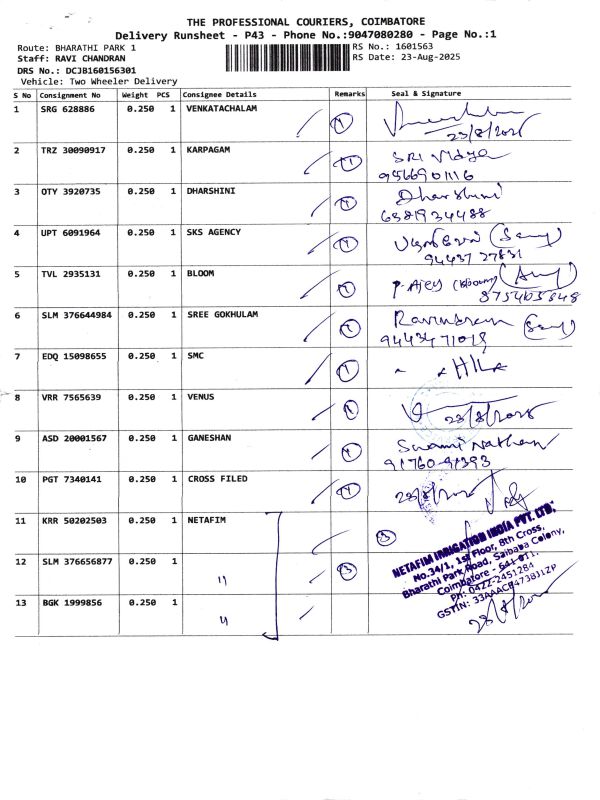 THE PROFESSIONAL COURIERS, COIMBATORE
Delivery Runsheet - P43 - Phone No.:9047080280 - Page No.:1
Route: BHARATHI PARK 1
RS No.: 1601563
Staff: RAVI CHANDRAN
RS Date: 23-Aug-2025
DRS No.: DCJB160156301
Vehicle: Two Wheeler Delivery
S No Consignment No Weight PCS Consignee Details Remarks Seal & Signature
1 SRG 628886 0.250 1 VENKATACHALAM
23/8/2025
2 TRZ 30090917 0.250 1 KARPAGAM SRI Vidya
9566901116
3 OTY 3920735 0.250 1 DHARSHINI Dharshini
6381934488
4 UPT 6091964 0.250 1 SKS AGENCY
94437 27831
5 TVL 2935131 0.250 1 BLOOM P. Ajey (Bloom)
6 SLM 376644984 0.250 1 SREE GOKHULAM
94434 71019
7 EDQ 15098655 0.250 1 SMC
8 VRR 7565639 0.250 1 VENUS 23/8/2025
9 ASD 20001567 0.250 1 GANESHAN Swami Nathan
91760-91393
10 PGT 7340141 0.250 1 CROSS FILED 23/8/2025
11 KRR 50202503 0.250 1 NETAFIM 3
12 SLM 376656877 0.250 1 " 3
13 BGK 1999856 0.250 1 "
NETAFIM IRRIGATION INDIA PVT. LTD.
No.34/1, 1st Floor, 8th Cross,
Bharathi Park Road, Saibaba Colony,
Coimbatore - 641 011.
Ph: 0422-2451284
23/8/2025